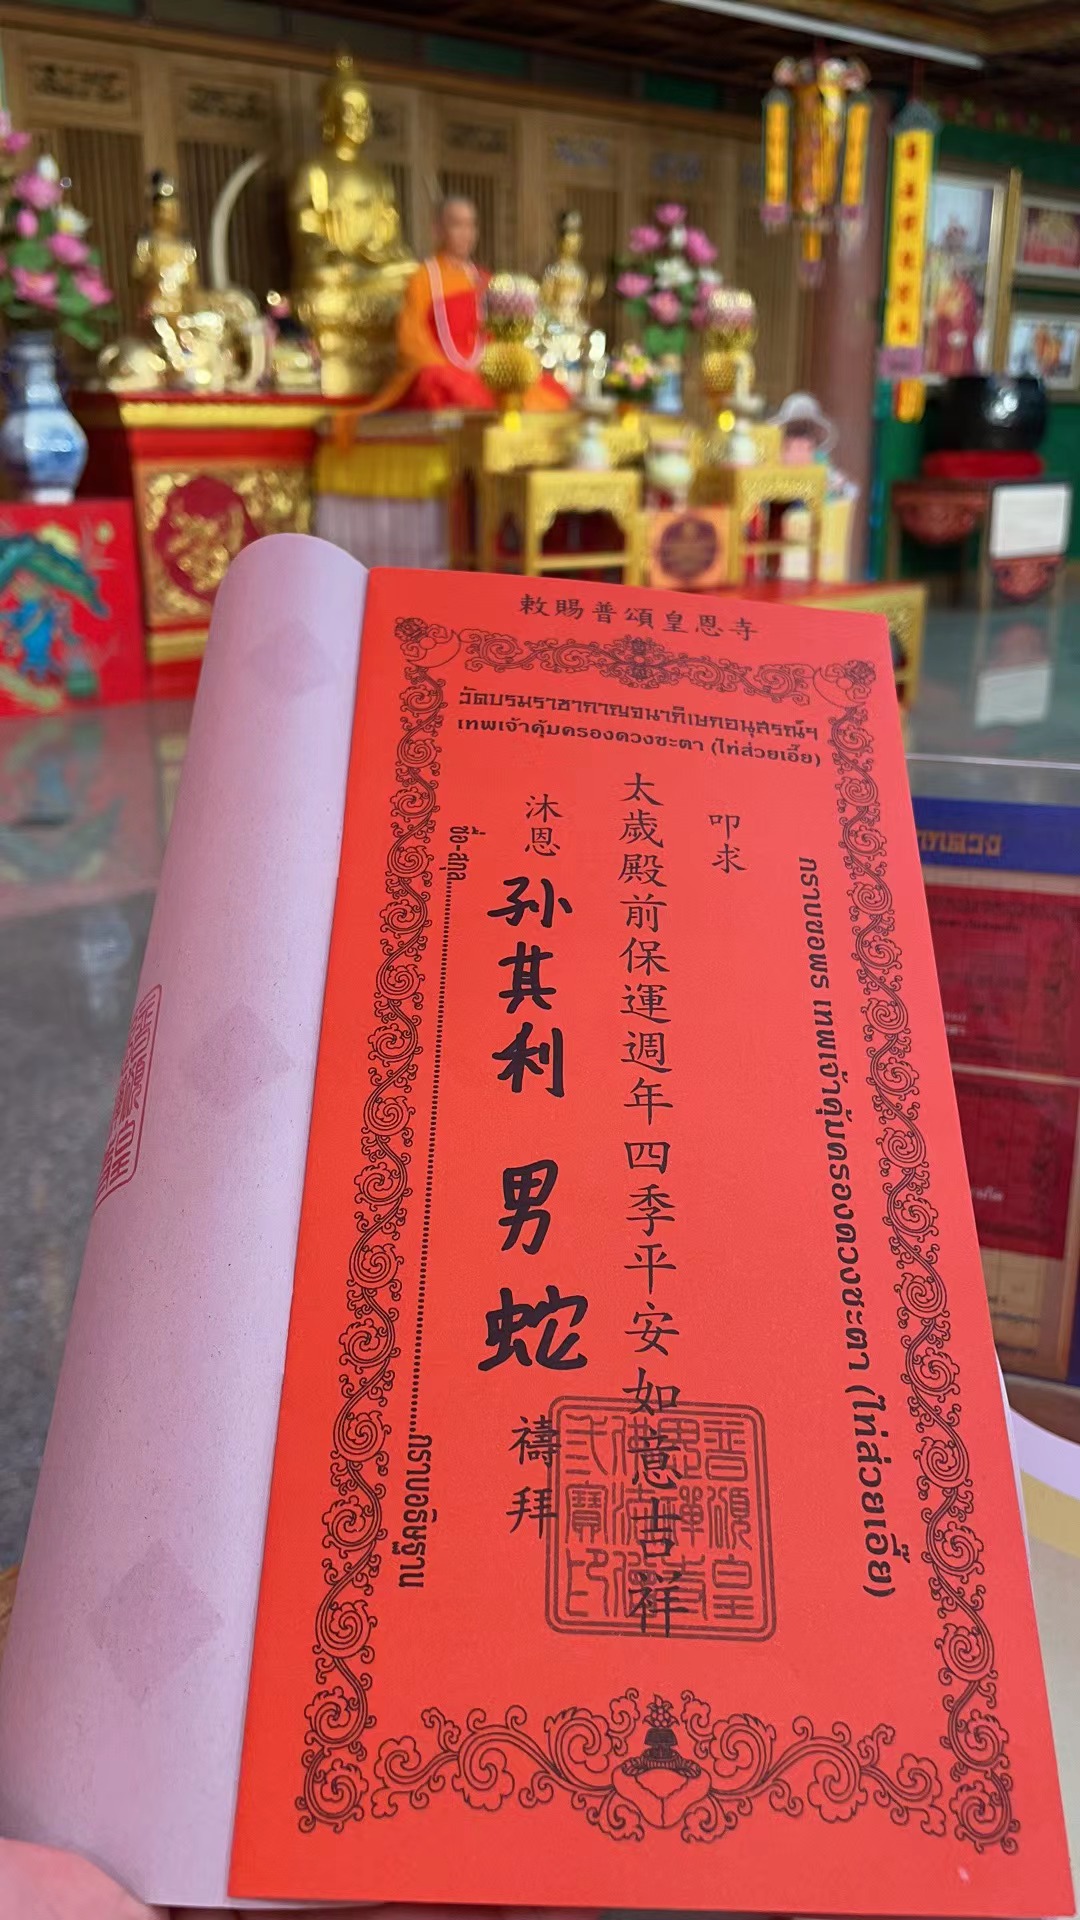 敕賜普頌皇恩寺
วัดบรมราชากาญจนาภิเษกอนุสรณ์ฯ
เทพเจ้าคุ้มครองดวงชะตา (ไท่ส่วยเอี๊ย)
กราบขอพร เทพเจ้าคุ้มครองดวงชะตา (ไท่ส่วยเอี๊ย)
叩求
太歲殿前保運週年四季平安如意吉祥
沐恩 孙其利 男 蛇 禱拜
ชื่อ-สกุล
กราบอธิษฐาน